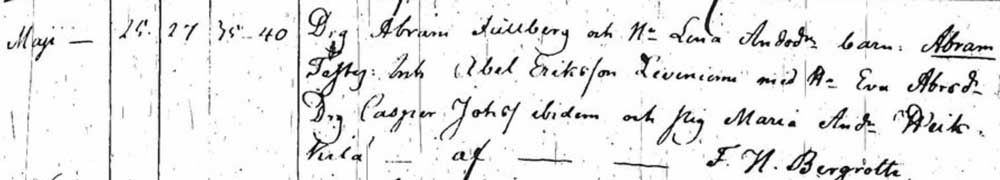 Maji — 25. 27 35-40 Drg Abram Füllberg och Hu Lena Andsdr barn: Abram
Test: Inh Abel Eriksson Levenieni med Hu Eva Abrsdr
Drg Casper Johs/ ibidem och pig Maria Andr Weik
kula — af — — F. H. Bergroth